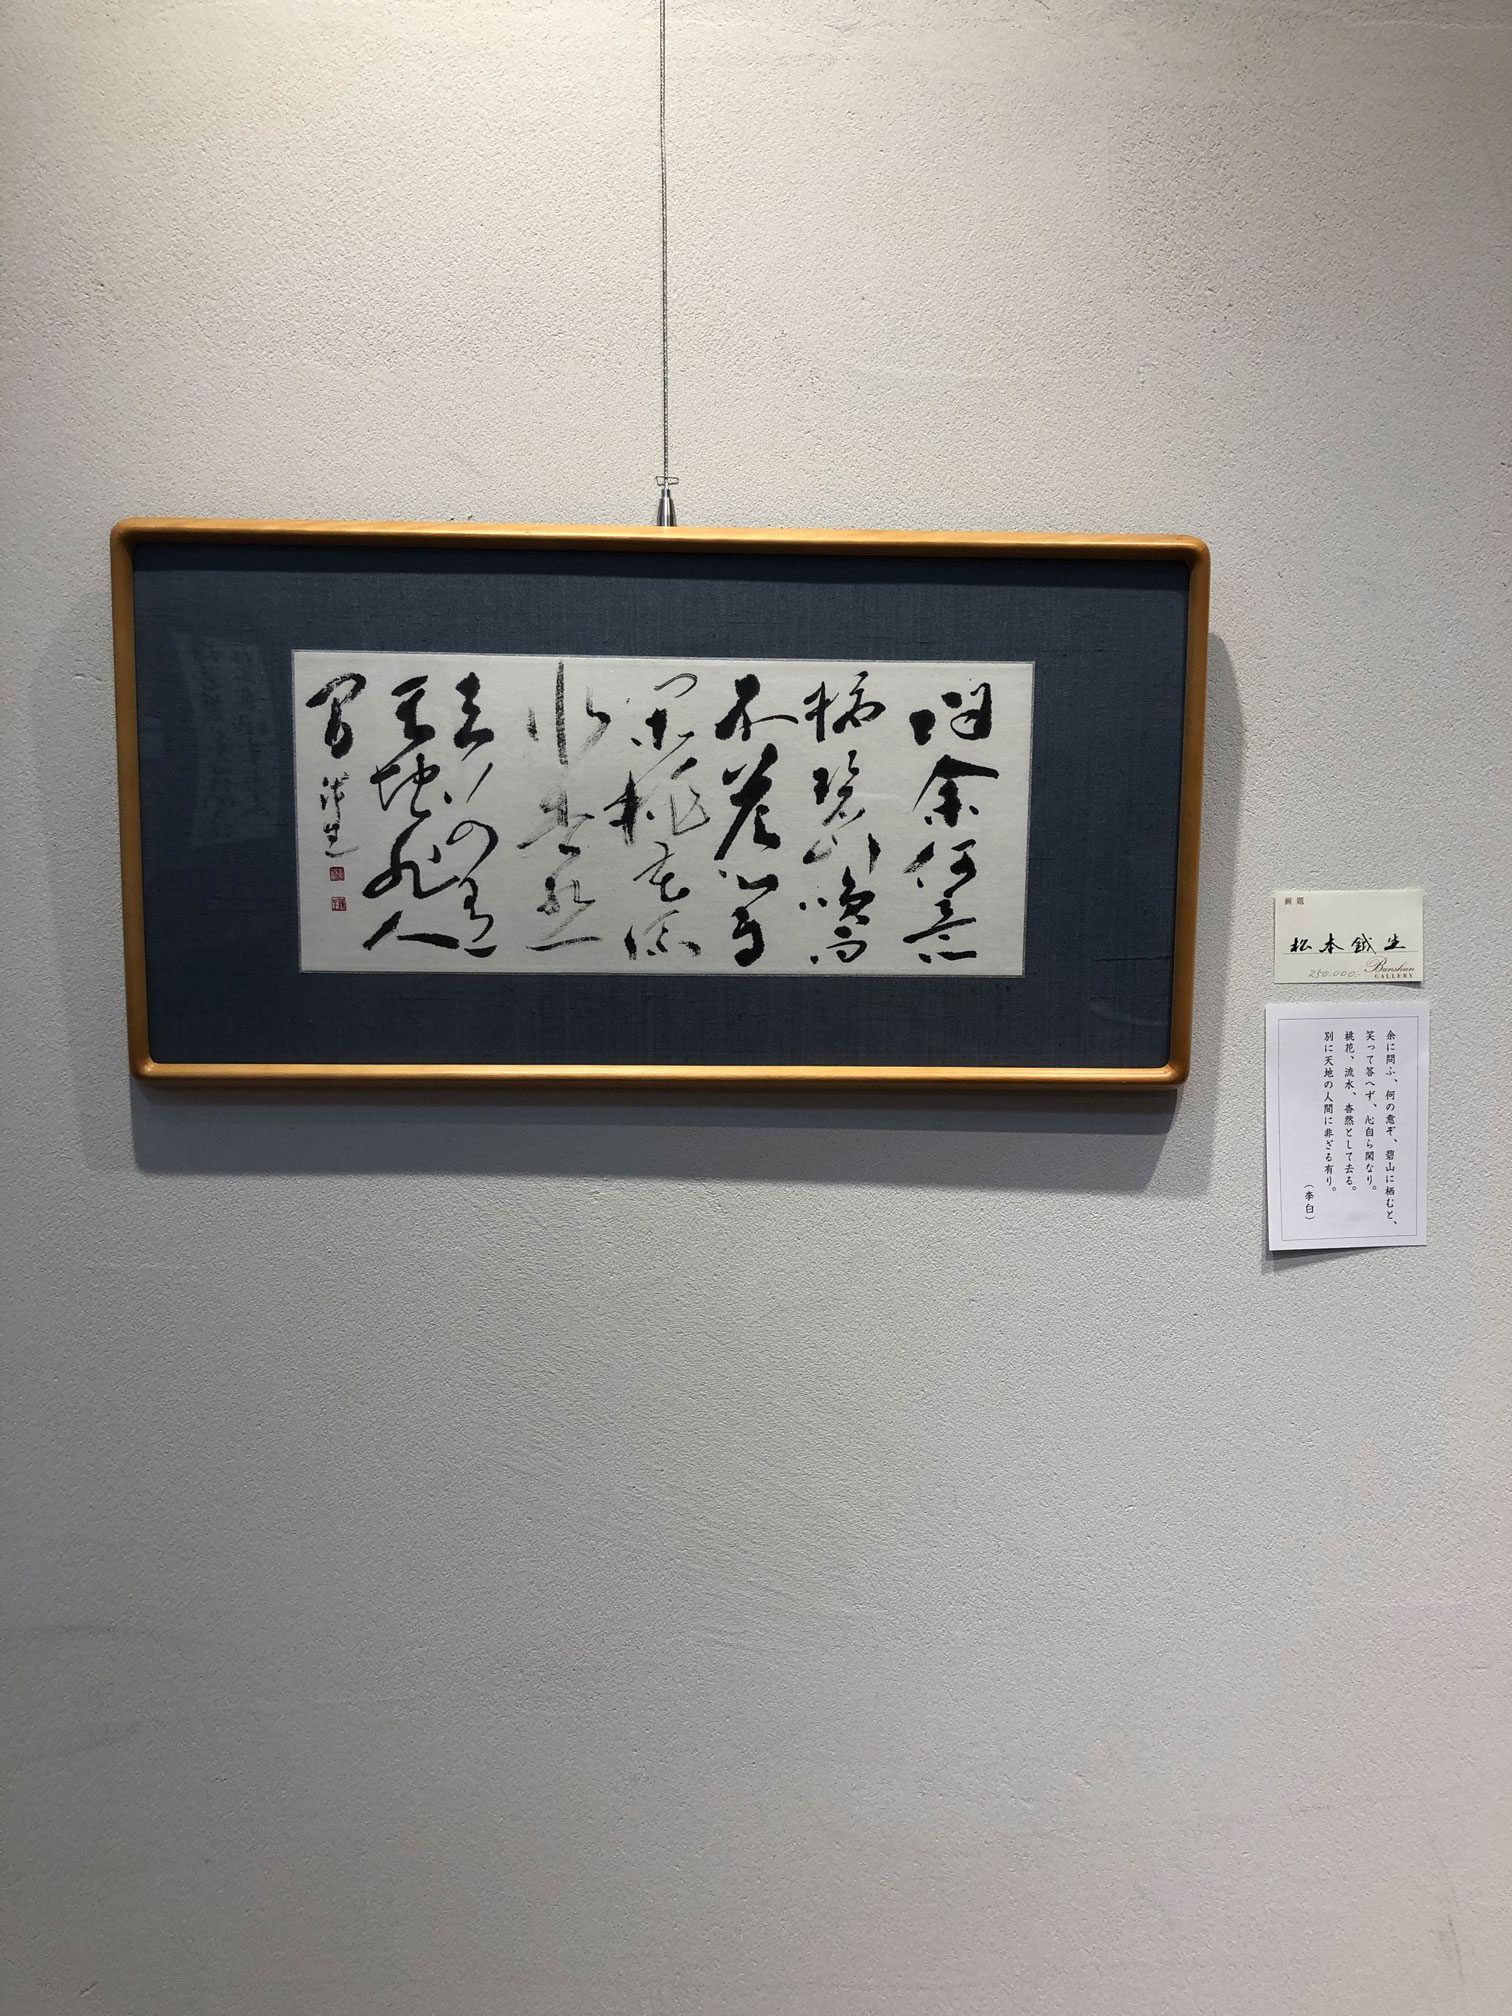 問余何意
栖碧山笑而
不答心自
閑桃花流
水杳然
去別有
天地非人
間 鉄生
画題
松本鉄生
250.000.-
Bunshun
GALLERY
余に問ふ、何の意ぞ、碧山に栖むと、
笑って答へず、心自ら閑なり。
桃花、流水、杳然として去る。
別に天地の人間に非ざる有り。
（李白）